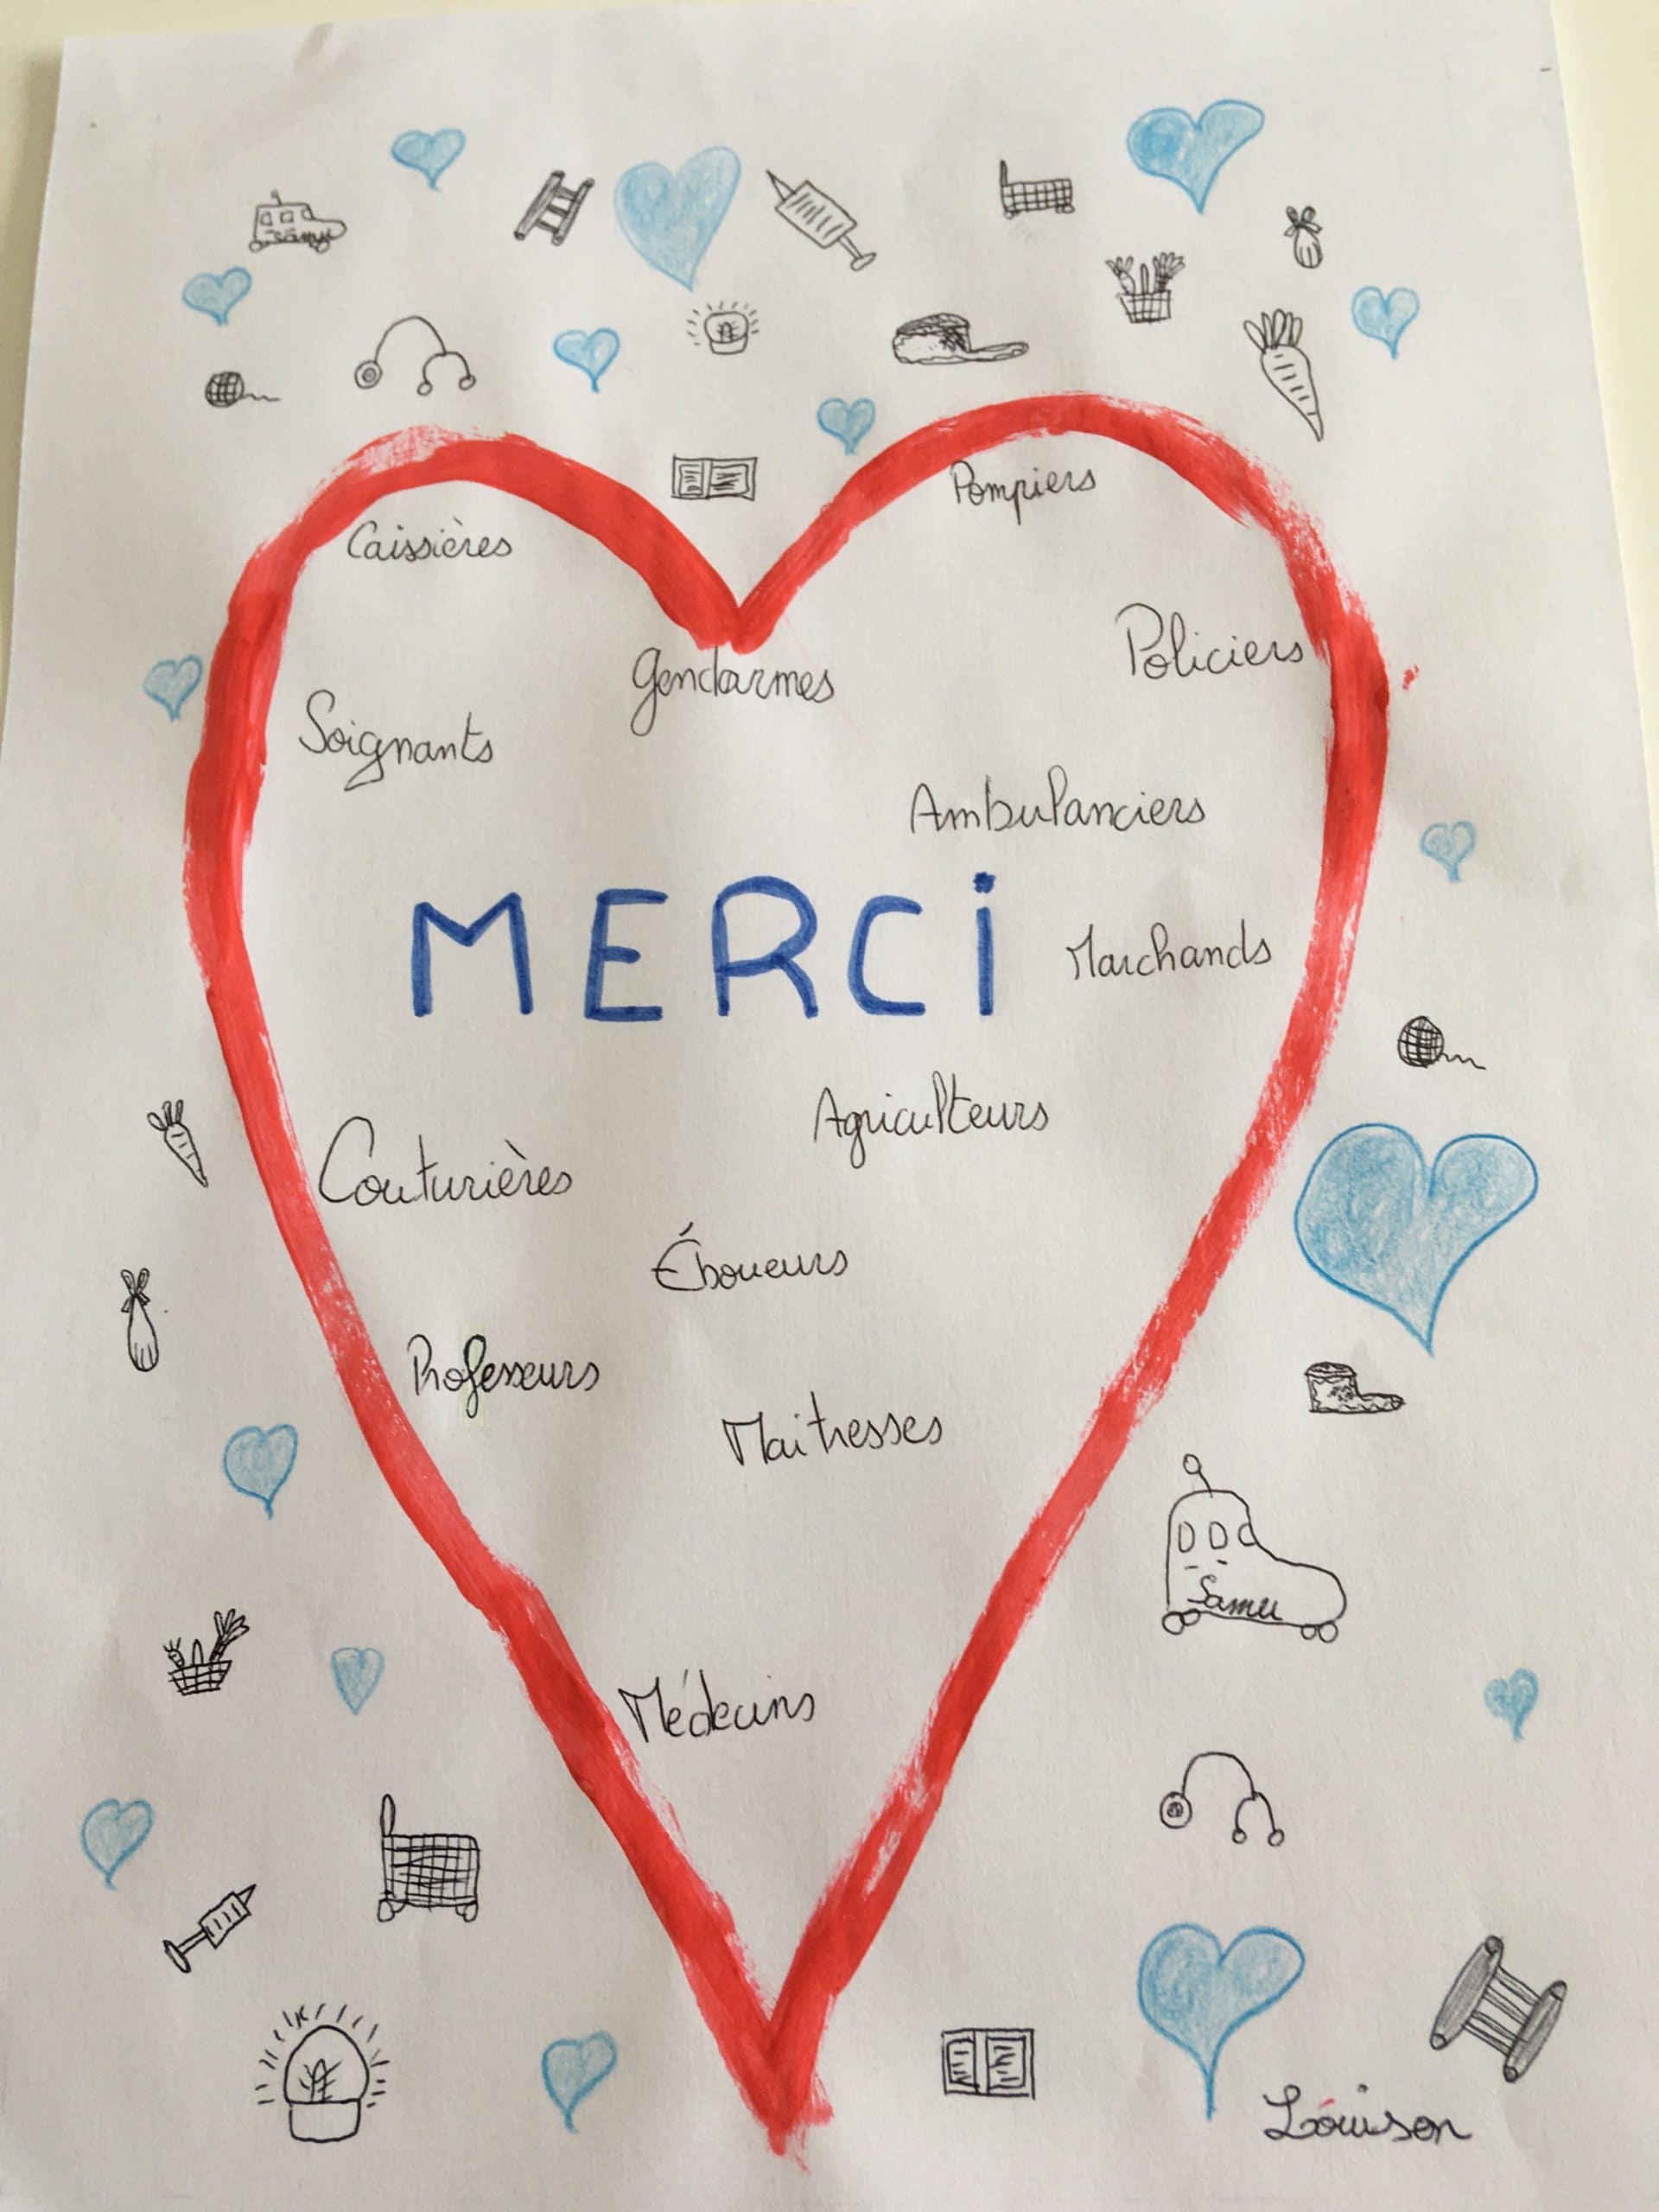 Samu
Pompiers
Caissières
Policiers
Gendarmes
Soignants
Ambulanciers
MERCi
Marchands
Agriculteurs
Couturières
Éboueurs
Professeurs
Maitresses
Samu
Médecins
Louison